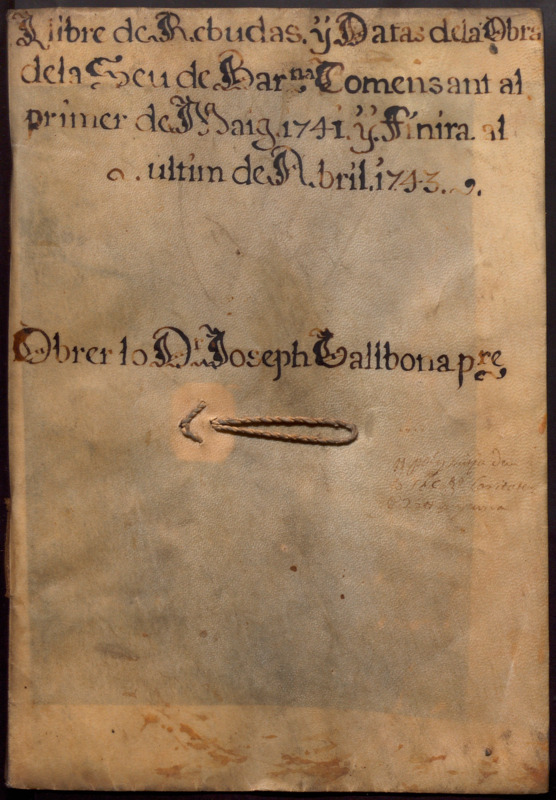 Llibre de Rebudas, ÿ Datas dela Obra
dela Seu de Barna Comensant al
primer de Maig, 1741. ÿ Finira al
ultim de Abril, 1743.
Obrer lo Dr Joseph Vallbona pre